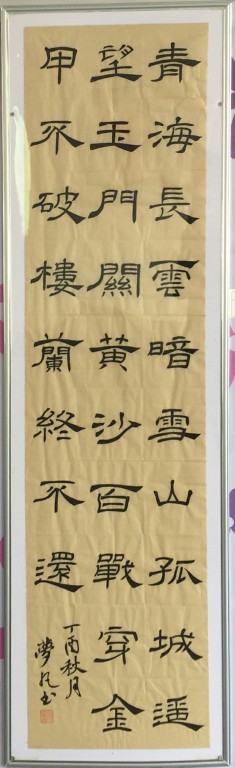 青海長雲暗雪山孤城遥
望玉門關黄沙百戰穿金
甲不破樓蘭終不還
丁酉秋月
夢凡书